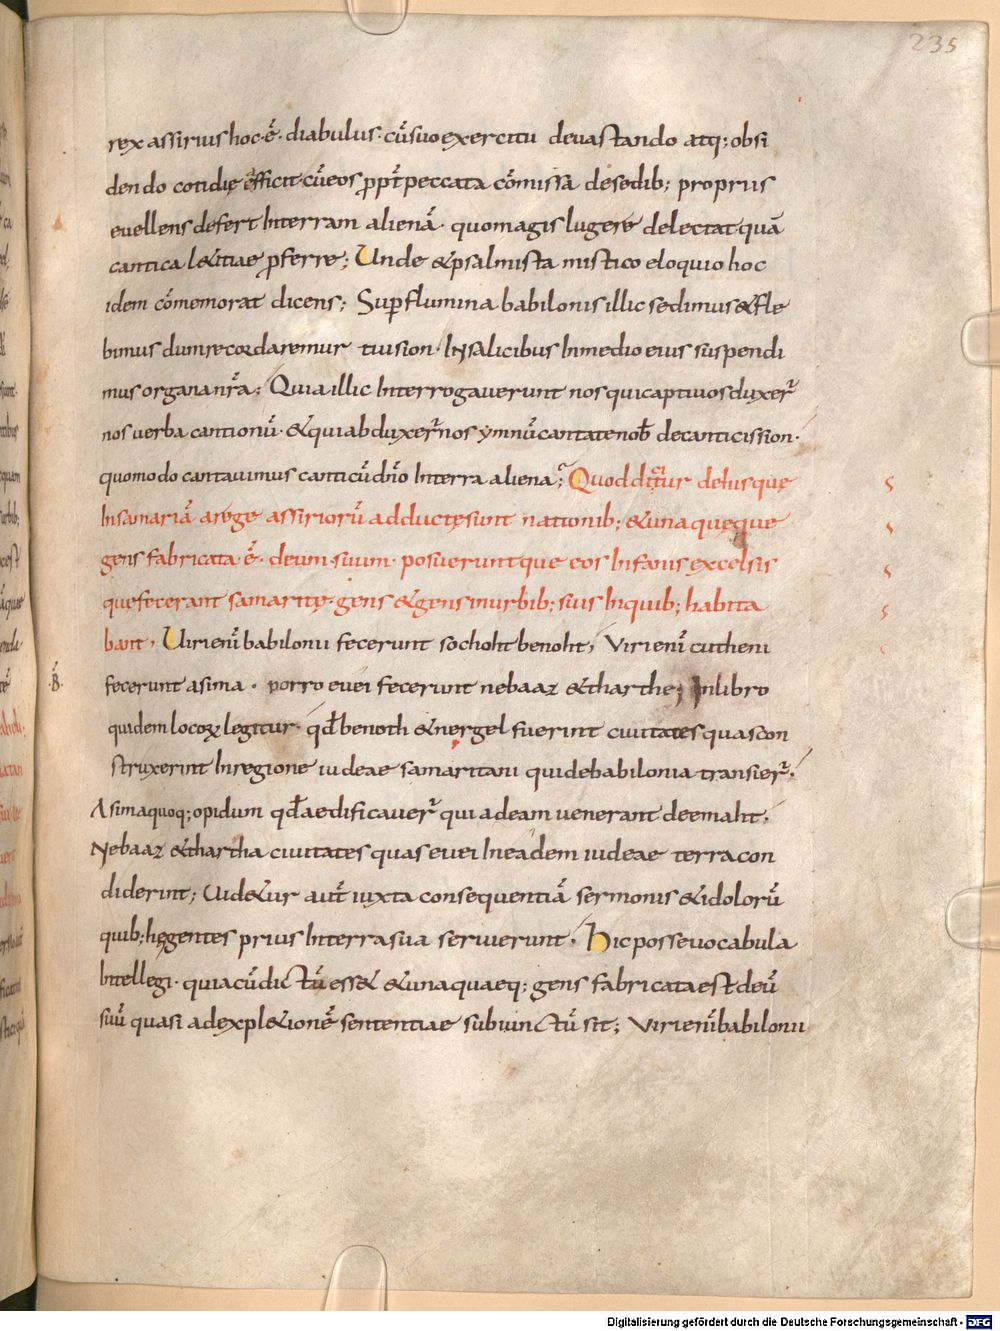 235
rex assirius hoc·ē· diabulus· cū suo exercitu deuastando atq; obsi
dendo cotidię efficit cū eos ꝓpt̄ peccata cōmissa de sedib; propriis
euellens defert In terram alienā· quo magis lugere delectat quā
cantica l&itiae ꝓferre; Unde & psalmista mistico eloquio hoc
idem cōmemorat dicens; Sup̄ flumina babilonis illic sedimus & fle
bimus dum recordaremur tui sion· In salicibus In medio eius suspendi
mus organa nr̄a; Quia illic Interrogauerunt nos qui captiuos duxer̄
nos uerba cantionū· & qui abduxer̄ nos ymnū cantate nob̄ de canticis sion·
quomodo cantauimus canticū dn̄o In terra aliena; Quod dic̄tur de his que
In samariā a rege assiriorū adductę sunt nationib; & una quęque
gens fabricata·ē· deum suum· posueruntque eos In fanis excelsis
que fecerant samaritę· gens & gens In urbib; suis In quib; habita
bant· Uiri eni babilonii fecerunt sochoht benoht, Viri eni cutheni
B
fecerunt asima· porro euei fecerunt nebaaz & tharthe; In libro
quidem locoꝝ legitur· qd̄ benoth & nergel fuerint ciuitates quas con
struxerint In regione iudeae samaritani qui de babilonia transier̄·
Asima quoq; opidum qd̄ aedificauer̄ qui ad eam uenerant de emaht;
Nebaaz & thartha ciuitates quas euei In eadem iudeae terra con
diderint; Uid&ur aut̄ iuxta consequentiā sermonis & idolorū
quib; hę gentes prius In terra sua seruierunt· Hic posse uocabula
Intellegi· quia cū dictū ess& & unaquaeq; gens fabricata est deū
suū quasi ad expl&ionē sententiae subiunctū sit; Viri eni babilonii
Digitalisierung gefördert durch die Deutsche Forschungsgemeinschaft - DFG